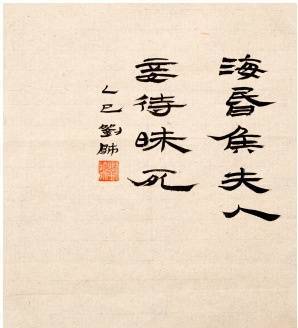 海昏侯夫人
妾待昧死
乙巳劉